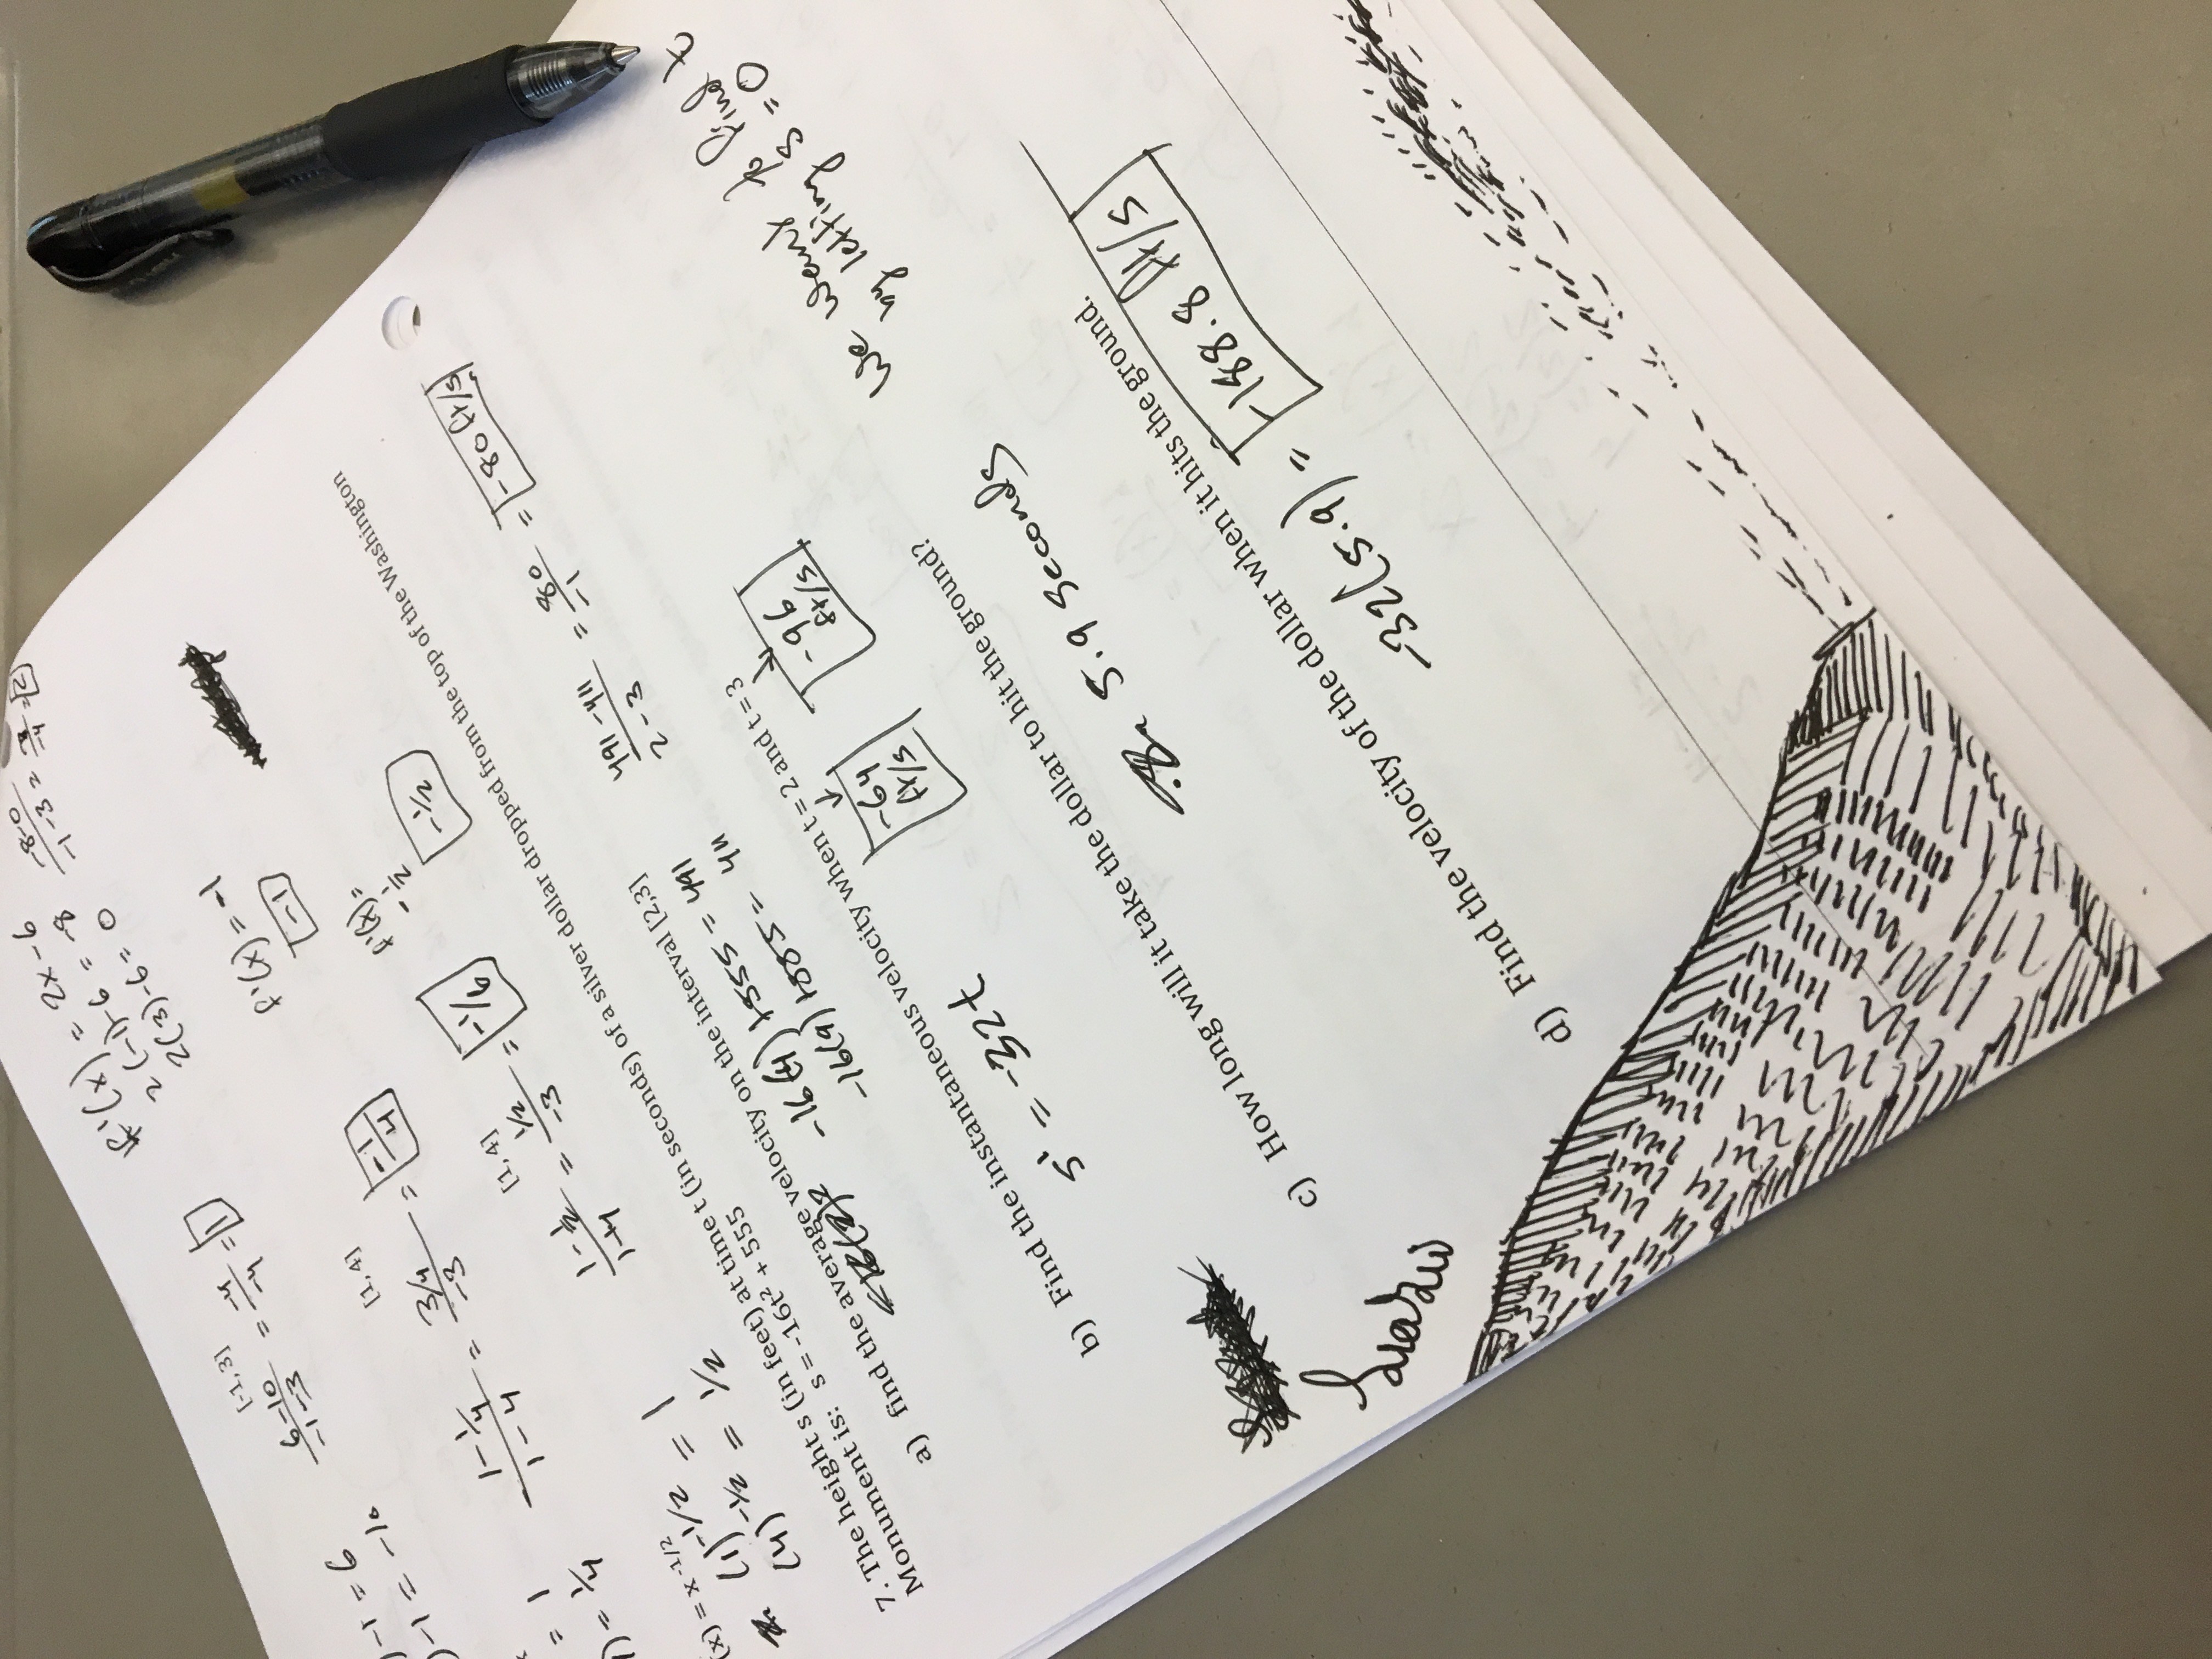 f'(x) = 2x - 6
2(-1)-6 = -8
2(3)-6 = 0
-8-0 / -1-3 = 8/-4 = 2
[-1, 3]
6-10 / -1-3 = -4/-4 = 1
f'(x) = -1
-1
)-1 = 6
)-1 = -10
[1, 4]
1-1/4 / 1-4 = 3/4 / -3 = -1/4
f'(x) =
-1/2
-1/2
= 1
) = 1/4
[1, 4]
1-1/2 / 1-4 = 1/2 / -3 = -1/6
(x) = x^-1/2
(1)^-1/2 = 1
(4)^-1/2 = 1/2
7. The height s (in feet) at time t (in seconds) of a silver dollar dropped from the top of the Washington
Monument is: s = -16t² + 555
a) find the average velocity on the interval [2,3]
-16(4)+555 = 491
-16(9)+555 = 411
491-411 / 2-3 = 80/-1 = -80 ft/s
b) Find the instantaneous velocity when t = 2 and t = 3
s' = -32t
-64
ft/s
-96
ft/s
We want to find t
by letting s = 0
c) How long will it take the dollar to hit the ground?
5.9 seconds
d) Find the velocity of the dollar when it hits the ground.
-32(5.9) = -188.8 ft/s